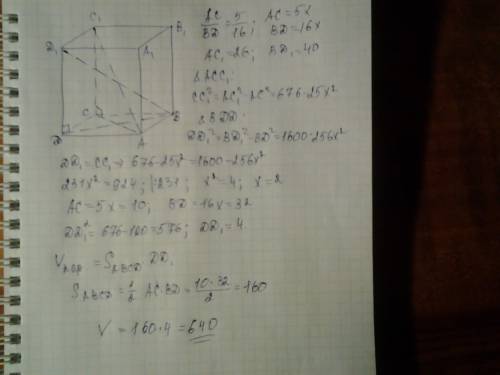 C₁ B₁
D₁ A₁
C B
D A
AC/BD = 5/16; AC = 5x
BD = 16x
AC₁ = 26; BD₁ = 40
△ACC₁
CC₁² = AC₁² - AC² = 676 - 25x²
△BDD₁
DD₁² = BD₁² - BD² = 1600 - 256x²
DD₁ = CC₁ → 676 - 25x² = 1600 - 256x²
231x² = 924; |:231; x² = 4; x = 2
AC = 5x = 10; BD = 16x = 32
DD₁² = 676 - 100 = 576; DD₁ = 4.
Vпар = S_ABCD · DD₁
S_ABCD = 1/2 AC·BD = 10·32/2 = 160
V = 160·4 = 640